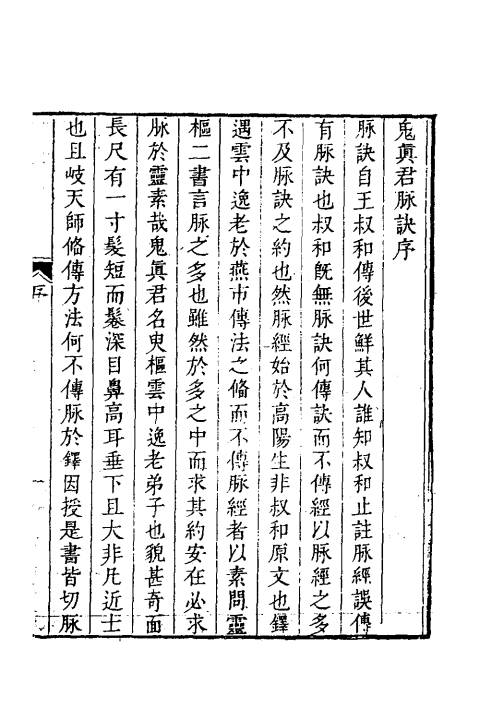 鬼眞君脉訣序
脉訣自王叔和傳後世鮮其人誰知叔和止註脉經誤傳
有脉訣也叔和旣無脉訣何傳訣而不傳經以脉經之多
不及脉訣之約也然脉經始於高陽生非叔和原文也鐸
遇雲中逸老於燕市傳法之俻而不傳脉經者以素問靈
樞二書言脉之多也雖然於多之中而求其約安在必求
脉於靈素哉鬼眞君名臾樞雲中逸老弟子也貌甚奇面
長尺有一寸髮短而鬈深目鼻高耳垂下且大非凡近士
也且岐天師俻傳方法何不傳脉於鐸因授是書皆切脉
序